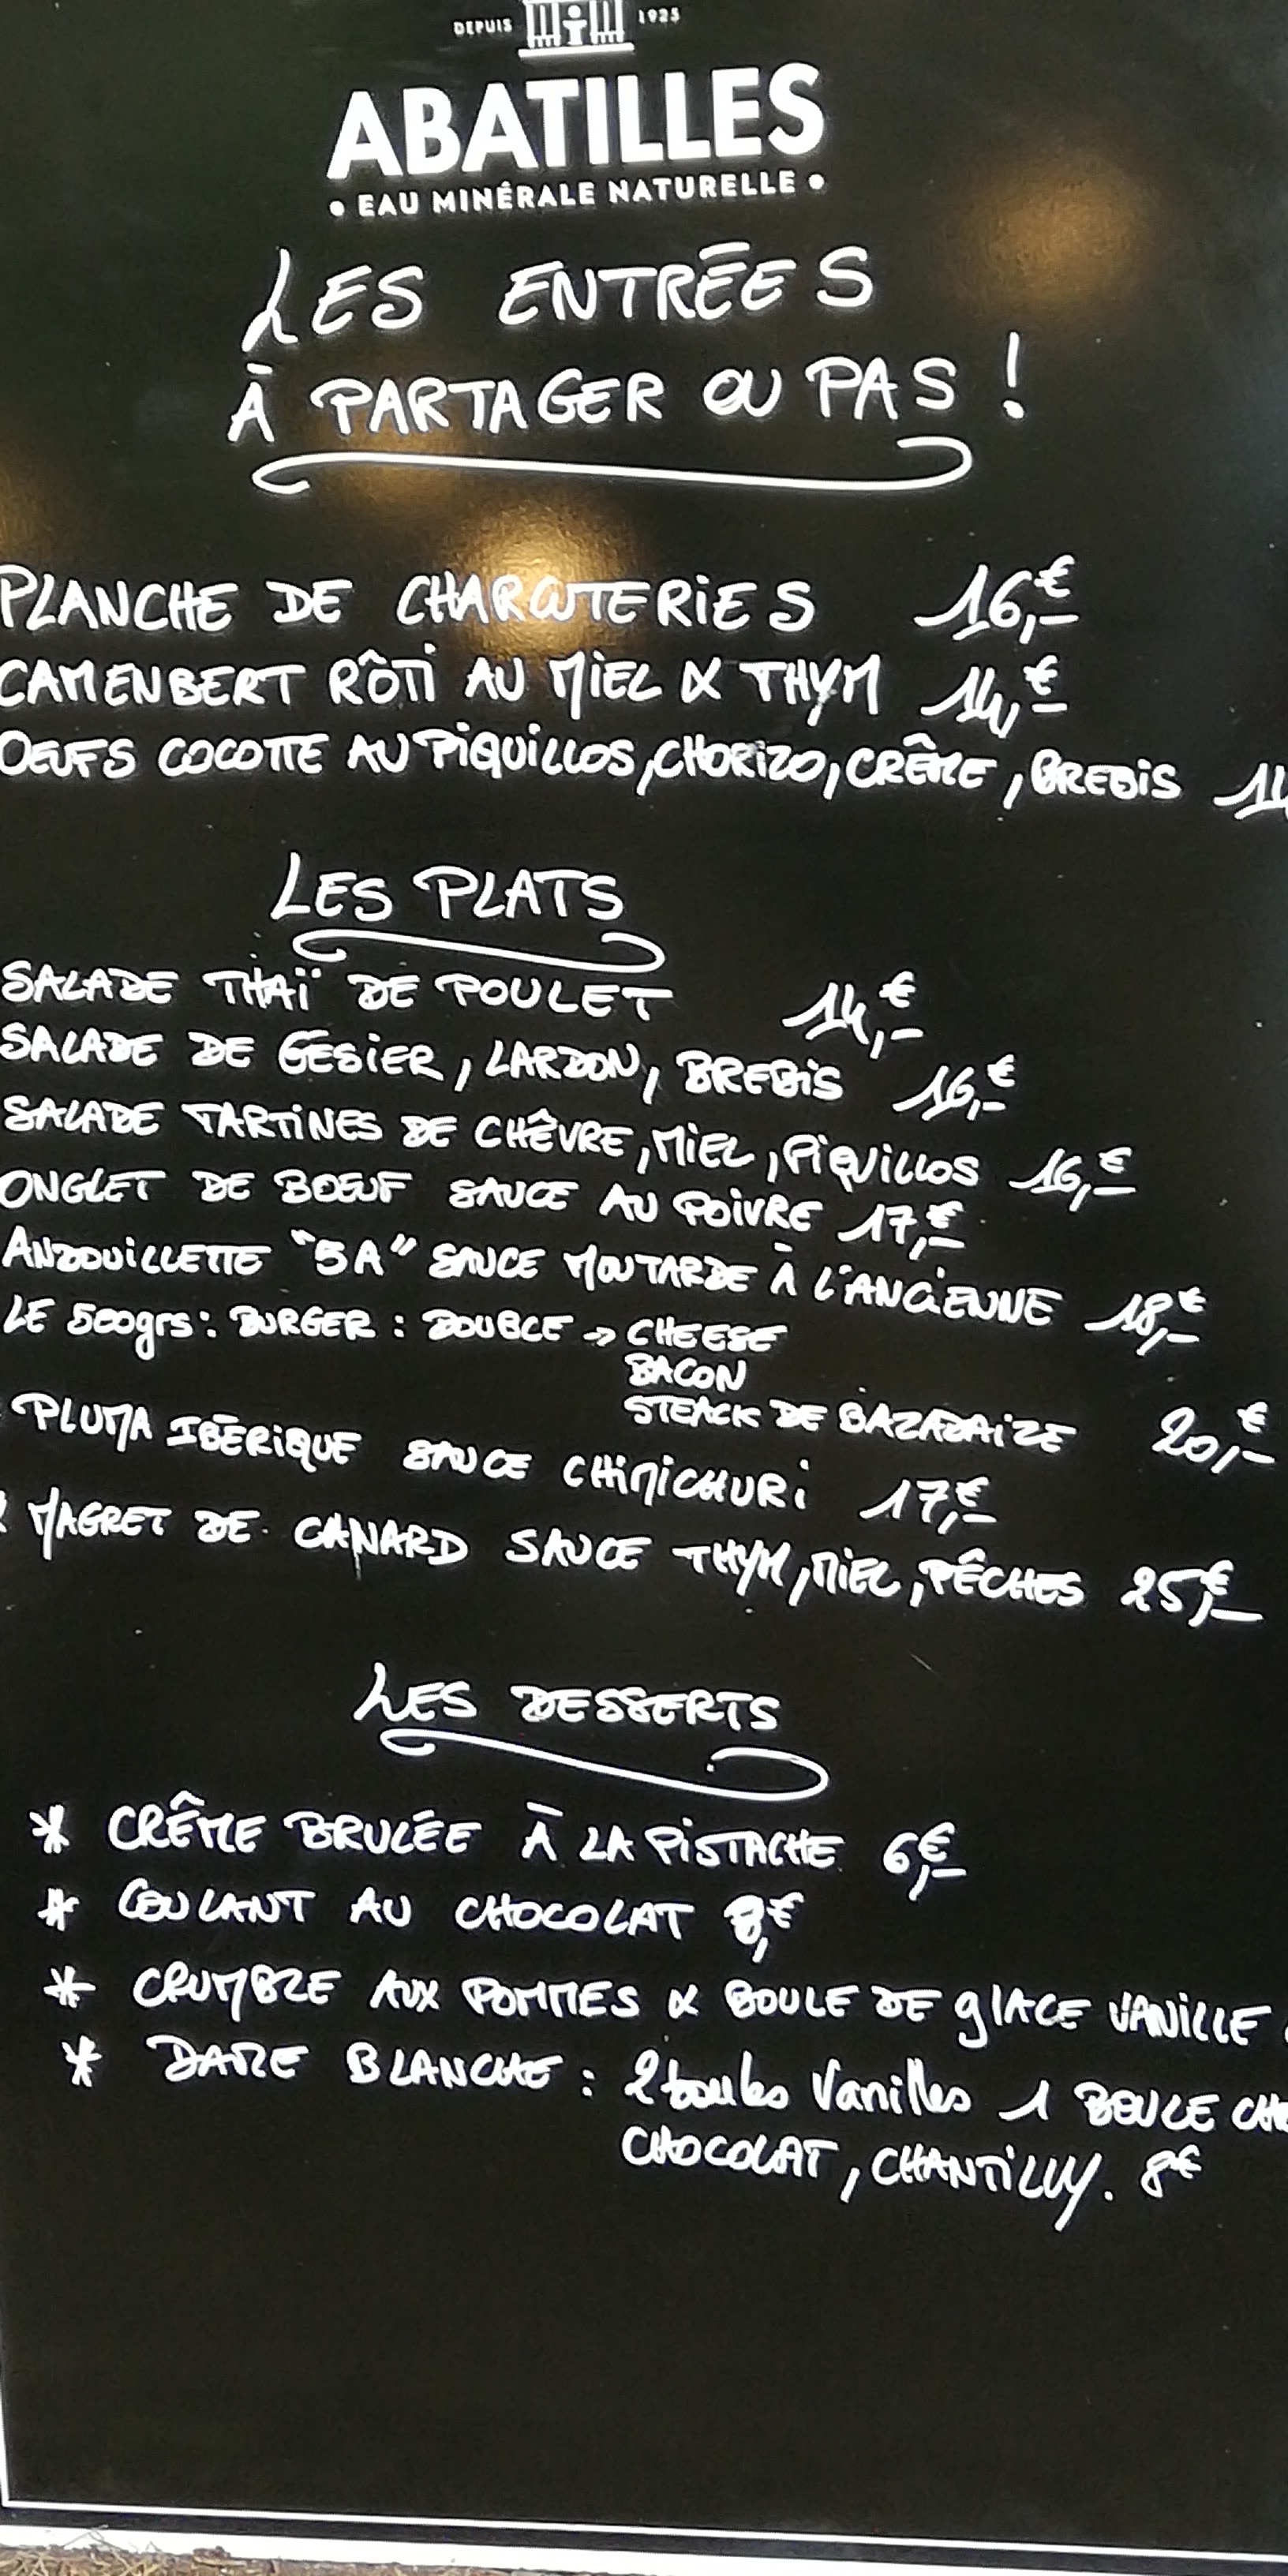 DEPUIS 1925
ABATILLES
• EAU MINÉRALE NATURELLE •
LES ENTRÉES
À PARTAGER OU PAS !
PLANCHE DE CHARCUTERIES 16,-€
CAMENBERT RÔTI AU MIEL & THYM 14,-€
OEUFS COCOTTE AU PIQUILLOS, CHORIZO, CRÊME, BREBIS
LES PLATS
SALADE THAÏ DE POULET 14,-€
SALADE DE GESIER, LARDON, BREBIS 16,-€
SALADE TARTINES DE CHÊVRE, MIEL, PIQUILLOS 16,-€
ONGLET DE BOEUF SAUCE AU POIVRE 17,-€
ANDOUILLETTE "5A" SAUCE MOUTARDE À L'ANCIENNE 18,-€
LE 500grs : BURGER : DOUBLE → CHEESE
BACON
STEACK DE BAZADAIZE 20,-€
PLUMA IBÉRIQUE SAUCE CHIMICHURI 17,-€
MAGRET DE CANARD SAUCE THYM, MIEL, PÊCHES 25,-€
LES DESSERTS
* CRÊME BRULÉE À LA PISTACHE 6,-€
* COULANT AU CHOCOLAT 8,€
* CRUMBLE AUX POMMES & BOULE DE glACE VANILLE
* DAME BLANCHE : 2 boules Vanilles 1 BOULE CHO
CHOCOLAT, CHANTILLY. 8€